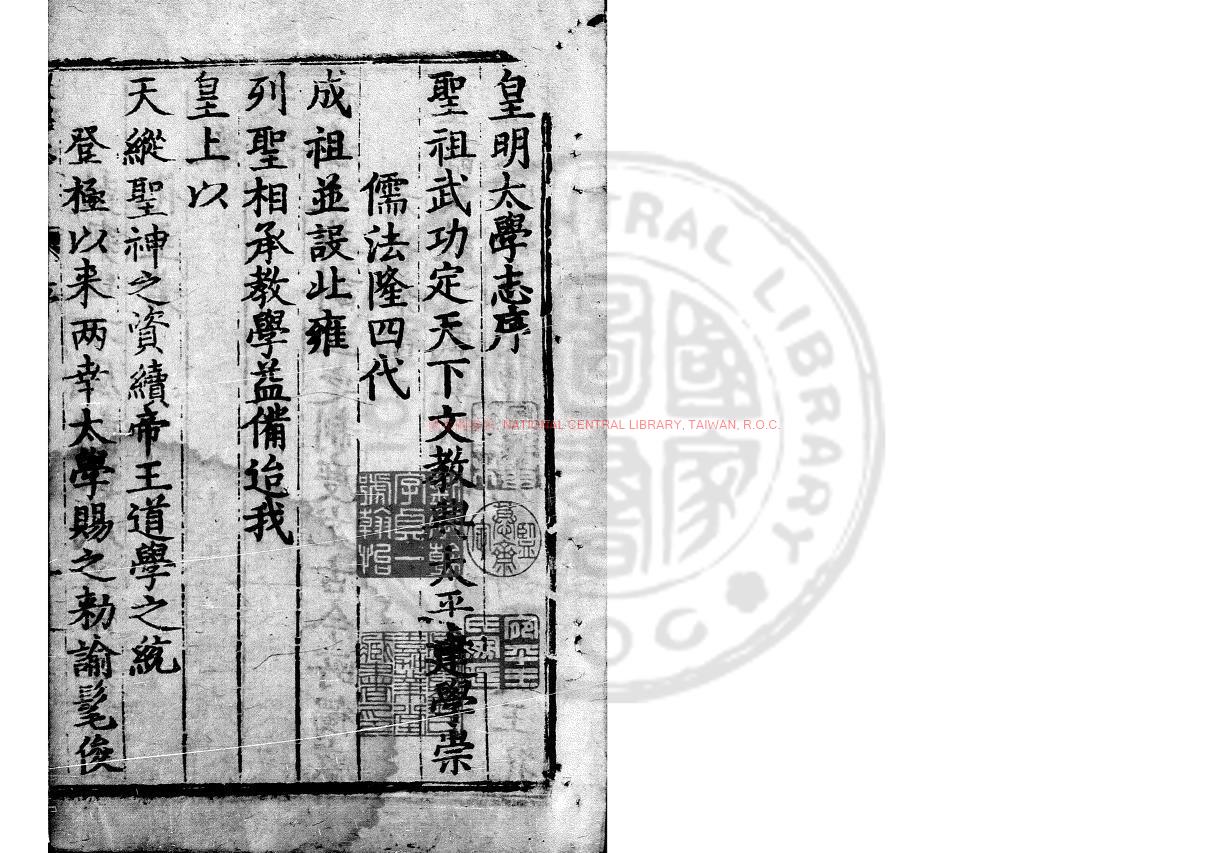 皇明太學志序
聖祖武功定天下文教興太平建學崇
儒法隆四代
成祖並設北雍
列聖相承教學益備迨我
皇上以
天縱聖神之資續帝王道學之統
登極以来两幸太學賜之勑諭髦俊
NATIONAL CENTRAL LIBRARY, TAIWAN, R.O.C.
CENTRAL LIBRARY